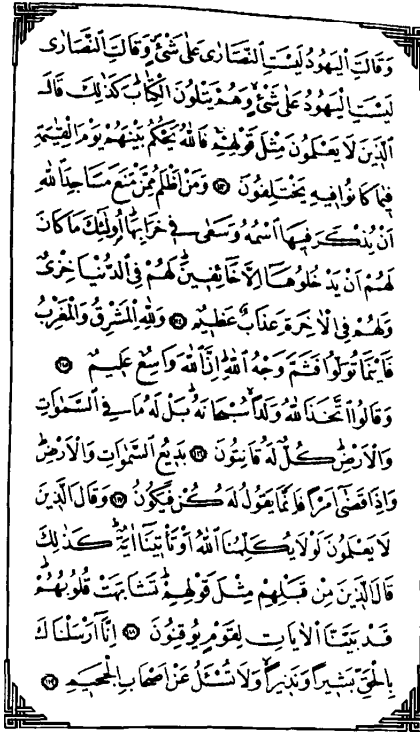 وَقَالَتِ الْيَهُودُ لَيْسَتِ النَّصَارٰى عَلٰى شَيْءٍ وَقَالَتِ النَّصَارٰى
لَيْسَتِ الْيَهُودُ عَلٰى شَيْءٍ وَهُمْ يَتْلُونَ الْكِتَابَ كَذٰلِكَ قَالَ
الَّذِينَ لَا يَعْلَمُونَ مِثْلَ قَوْلِهِمْ فَاللّٰهُ يَحْكُمُ بَيْنَهُمْ يَوْمَ الْقِيٰمَةِ
فِيمَا كَانُوا فِيهِ يَخْتَلِفُونَ ﴿١١٣﴾ وَمَنْ اَظْلَمُ مِمَّنْ مَنَعَ مَسَاجِدَ اللّٰهِ
اَنْ يُذْكَرَ فِيهَا اسْمُهُ وَسَعٰى فِي خَرَابِهَا اُولٰئِكَ مَا كَانَ
لَهُمْ اَنْ يَدْخُلُوهَا اِلَّا خَائِفِينَ لَهُمْ فِي الدُّنْيَا خِزْيٌ
وَلَهُمْ فِي الْاٰخِرَةِ عَذَابٌ عَظِيمٌ ﴿١١٤﴾ وَلِلّٰهِ الْمَشْرِقُ وَالْمَغْرِبُ
فَاَيْنَمَا تُوَلُّوا فَثَمَّ وَجْهُ اللّٰهِ اِنَّ اللّٰهَ وَاسِعٌ عَلِيمٌ ﴿١١٥﴾
وَقَالُوا اتَّخَذَ اللّٰهُ وَلَدًا سُبْحَانَهُ بَلْ لَهُ مَا فِي السَّمٰوَاتِ
وَالْاَرْضِ كُلٌّ لَهُ قَانِتُونَ ﴿١١٦﴾ بَدِيعُ السَّمٰوَاتِ وَالْاَرْضِ
وَاِذَا قَضٰى اَمْرًا فَاِنَّمَا يَقُولُ لَهُ كُنْ فَيَكُونُ ﴿١١٧﴾ وَقَالَ الَّذِينَ
لَا يَعْلَمُونَ لَوْلَا يُكَلِّمُنَا اللّٰهُ اَوْ تَأْتِينَا اٰيَةٌ كَذٰلِكَ
قَالَ الَّذِينَ مِنْ قَبْلِهِمْ مِثْلَ قَوْلِهِمْ تَشَابَهَتْ قُلُوبُهُمْ
قَدْ بَيَّنَّا الْاٰيَاتِ لِقَوْمٍ يُوقِنُونَ ﴿١١٨﴾ اِنَّا اَرْسَلْنَاكَ
بِالْحَقِّ بَشِيرًا وَنَذِيرًا وَلَا تُسْـَٔلُ عَنْ اَصْحَابِ الْجَحِيمِ ﴿١١٩﴾